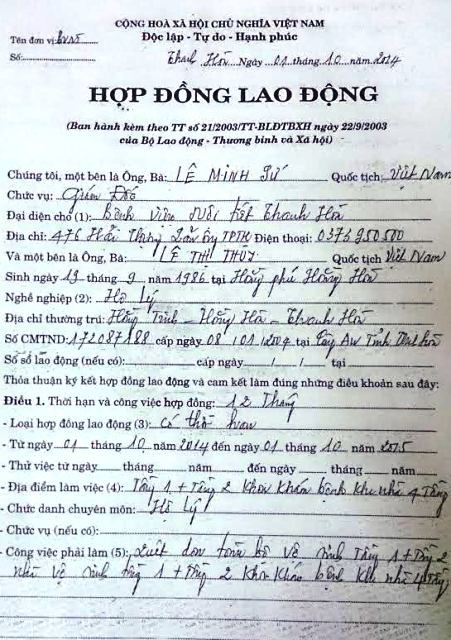 CỘNG HOÀ XÃ HỘI CHỦ NGHĨA VIỆT NAM
Tên đơn vị: BVNT Độc lập - Tự do - Hạnh phúc
Số: Thanh Hóa Ngày 01 tháng 10 năm 2014
HỢP ĐỒNG LAO ĐỘNG
(Ban hành kèm theo TT số 21/2003/TT-BLĐTBXH ngày 22/9/2003
của Bộ Lao động - Thương binh và Xã hội)
Chúng tôi, một bên là Ông, Bà: LÊ MINH SỨ Quốc tịch Việt Nam
Chức vụ: Giám Đốc
Đại diện cho (1): Bệnh viện Nội tiết Thanh Hóa
Địa chỉ: 476 Hải Thượng Lãn Ông TPTH Điện thoại: 0373950500
Và một bên là Ông, Bà: LÊ THỊ THUÝ Quốc tịch Việt Nam
Sinh ngày 19 tháng 9 năm 1986 tại Hoằng phú Hoằng Hóa
Nghề nghiệp (2): Hộ lý
Địa chỉ thường trú: Hoằng Trinh - Hoằng Hóa - Thanh Hóa
Số CMTND: 172087188 cấp ngày 08/01/2004 tại Công An Tỉnh Thanh hóa
Số sổ lao động (nếu có): cấp ngày / / tại
Thỏa thuận ký kết hợp đồng lao động và cam kết làm đúng những điều khoản sau đây:
Điều 1. Thời hạn và công việc hợp đồng: 12 Tháng
- Loại hợp đồng lao động (3): Có thời hạn
- Từ ngày 01 tháng 10 năm 2014 đến ngày 01 tháng 10 năm 2015
- Thử việc từ ngày tháng năm đến ngày tháng năm
- Địa điểm làm việc (4): Tầng 1 + Tầng 2 Khoa Khám bệnh khu nhà 4 Tầng
- Chức danh chuyên môn: Hộ Lý
- Chức vụ (nếu có):
- Công việc phải làm (5): Quét dọn toàn bộ vệ sinh Tầng 1 + Tầng 2
nhà vệ sinh tầng 1 + Tầng 2 Khoa Khám bệnh khu nhà 4 Tầng